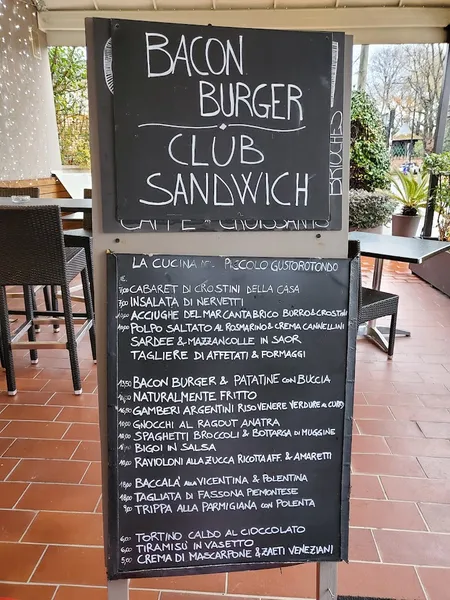 BACON
BURGER
CLUB
SANDWICH
BRIOCHES
CAFFÈ CROISSANTS
LA CUCINA DEL PICCOLO GUSTOROTONDO
CABARET DI CROSTINI DELLA CASA
INSALATA DI NERVETTI
ACCIUGHE DEL MAR CANTABRICO BURRO & CROSTINI
POLPO SALTATO AL ROSMARINO & CREMA CANNELLINI
SARDEE & MAZZANCOLLE IN SAOR
TAGLIERE DI AFFETATI & FORMAGGI
13,50 BACON BURGER & PATATINE CON BUCCIA
NATURALMENTE FRITTO
GAMBERI ARGENTINI RISO VENERE VERDURE AL CURRY
GNOCCHI AL RAGOUT ANATRA
SPAGHETTI BROCCOLI & BOTTARGA DI MUGGINE
BIGOI IN SALSA
RAVIOLONI ALLA ZUCCA RICOTTA AFF. & AMARETTI
BACCALA' ALLA VICENTINA & POLENTINA
18,00 TAGLIATA DI FASSONA PIEMONTESE
TRIPPA ALLA PARMIGIANA CON POLENTA
6,00 TORTINO CALDO AL CIOCCOLATO
6,00 TIRAMISÙ IN VASETTO
5,00 CREMA DI MASCARPONE & ZAETI VENEZIANI